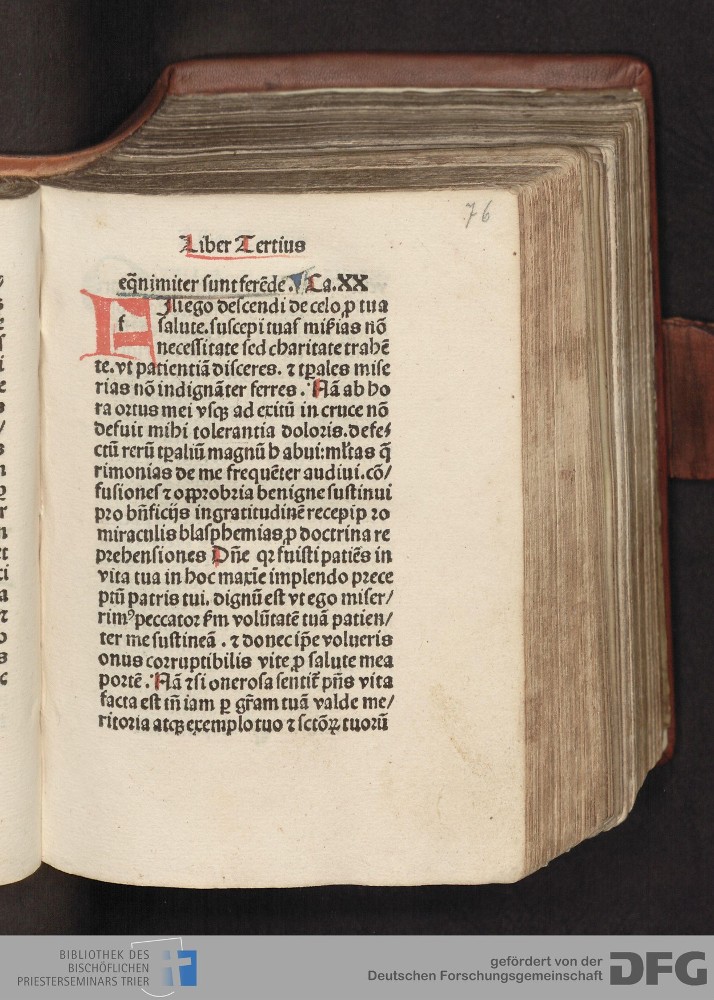 76
Liber Tertius
eq̄nimiter sunt ferēde. Ca. XX
f Ili ego descendi de celo ꝓ tua
salute. suscepi tuas mis̄ias nō
necessitate sed charitate trahē
te. vt patientiā disceres. ⁊ tꝑales mise
rias nō indignāter ferres. Nā ab ho
ra ortus mei vsqꝫ ad exitū in cruce nō
defuit mihi tolerantia doloris. defe/
ctū rerū tꝑaliū magnū habui: ml̄tas q̄
rimonias de me frequēter audiui. cō/
fusiones ⁊ opprobria benigne sustinui
pro bn̄ficijs ingratitudinē recepi ꝓ
miraculis blasphemias ꝓ doctrina re
prehensiones Dn̄e qꝛ fuisti patiēs in
vita tua in hoc maxīe implendo prece
ptū patris tui. dignū est vt ego miser/
rimꝰ peccator ẜm volūtatē tuā patien/
ter me sustineā. ⁊ donec ip̄e volueris
onus corruptibilis vite ꝓ salute mea
portē. Nā ⁊si onerosa sentit̄ p̄ns vita
facta est tn̄ iam ꝑ gr̄am tuā valde me/
ritoria atqꝫ exemplo tuo ⁊ sctōꝝ tuorū
BIBLIOTHEK DES
BISCHÖFLICHEN
PRIESTERSEMINARS TRIER
gefördert von der
Deutschen Forschungsgemeinschaft DFG